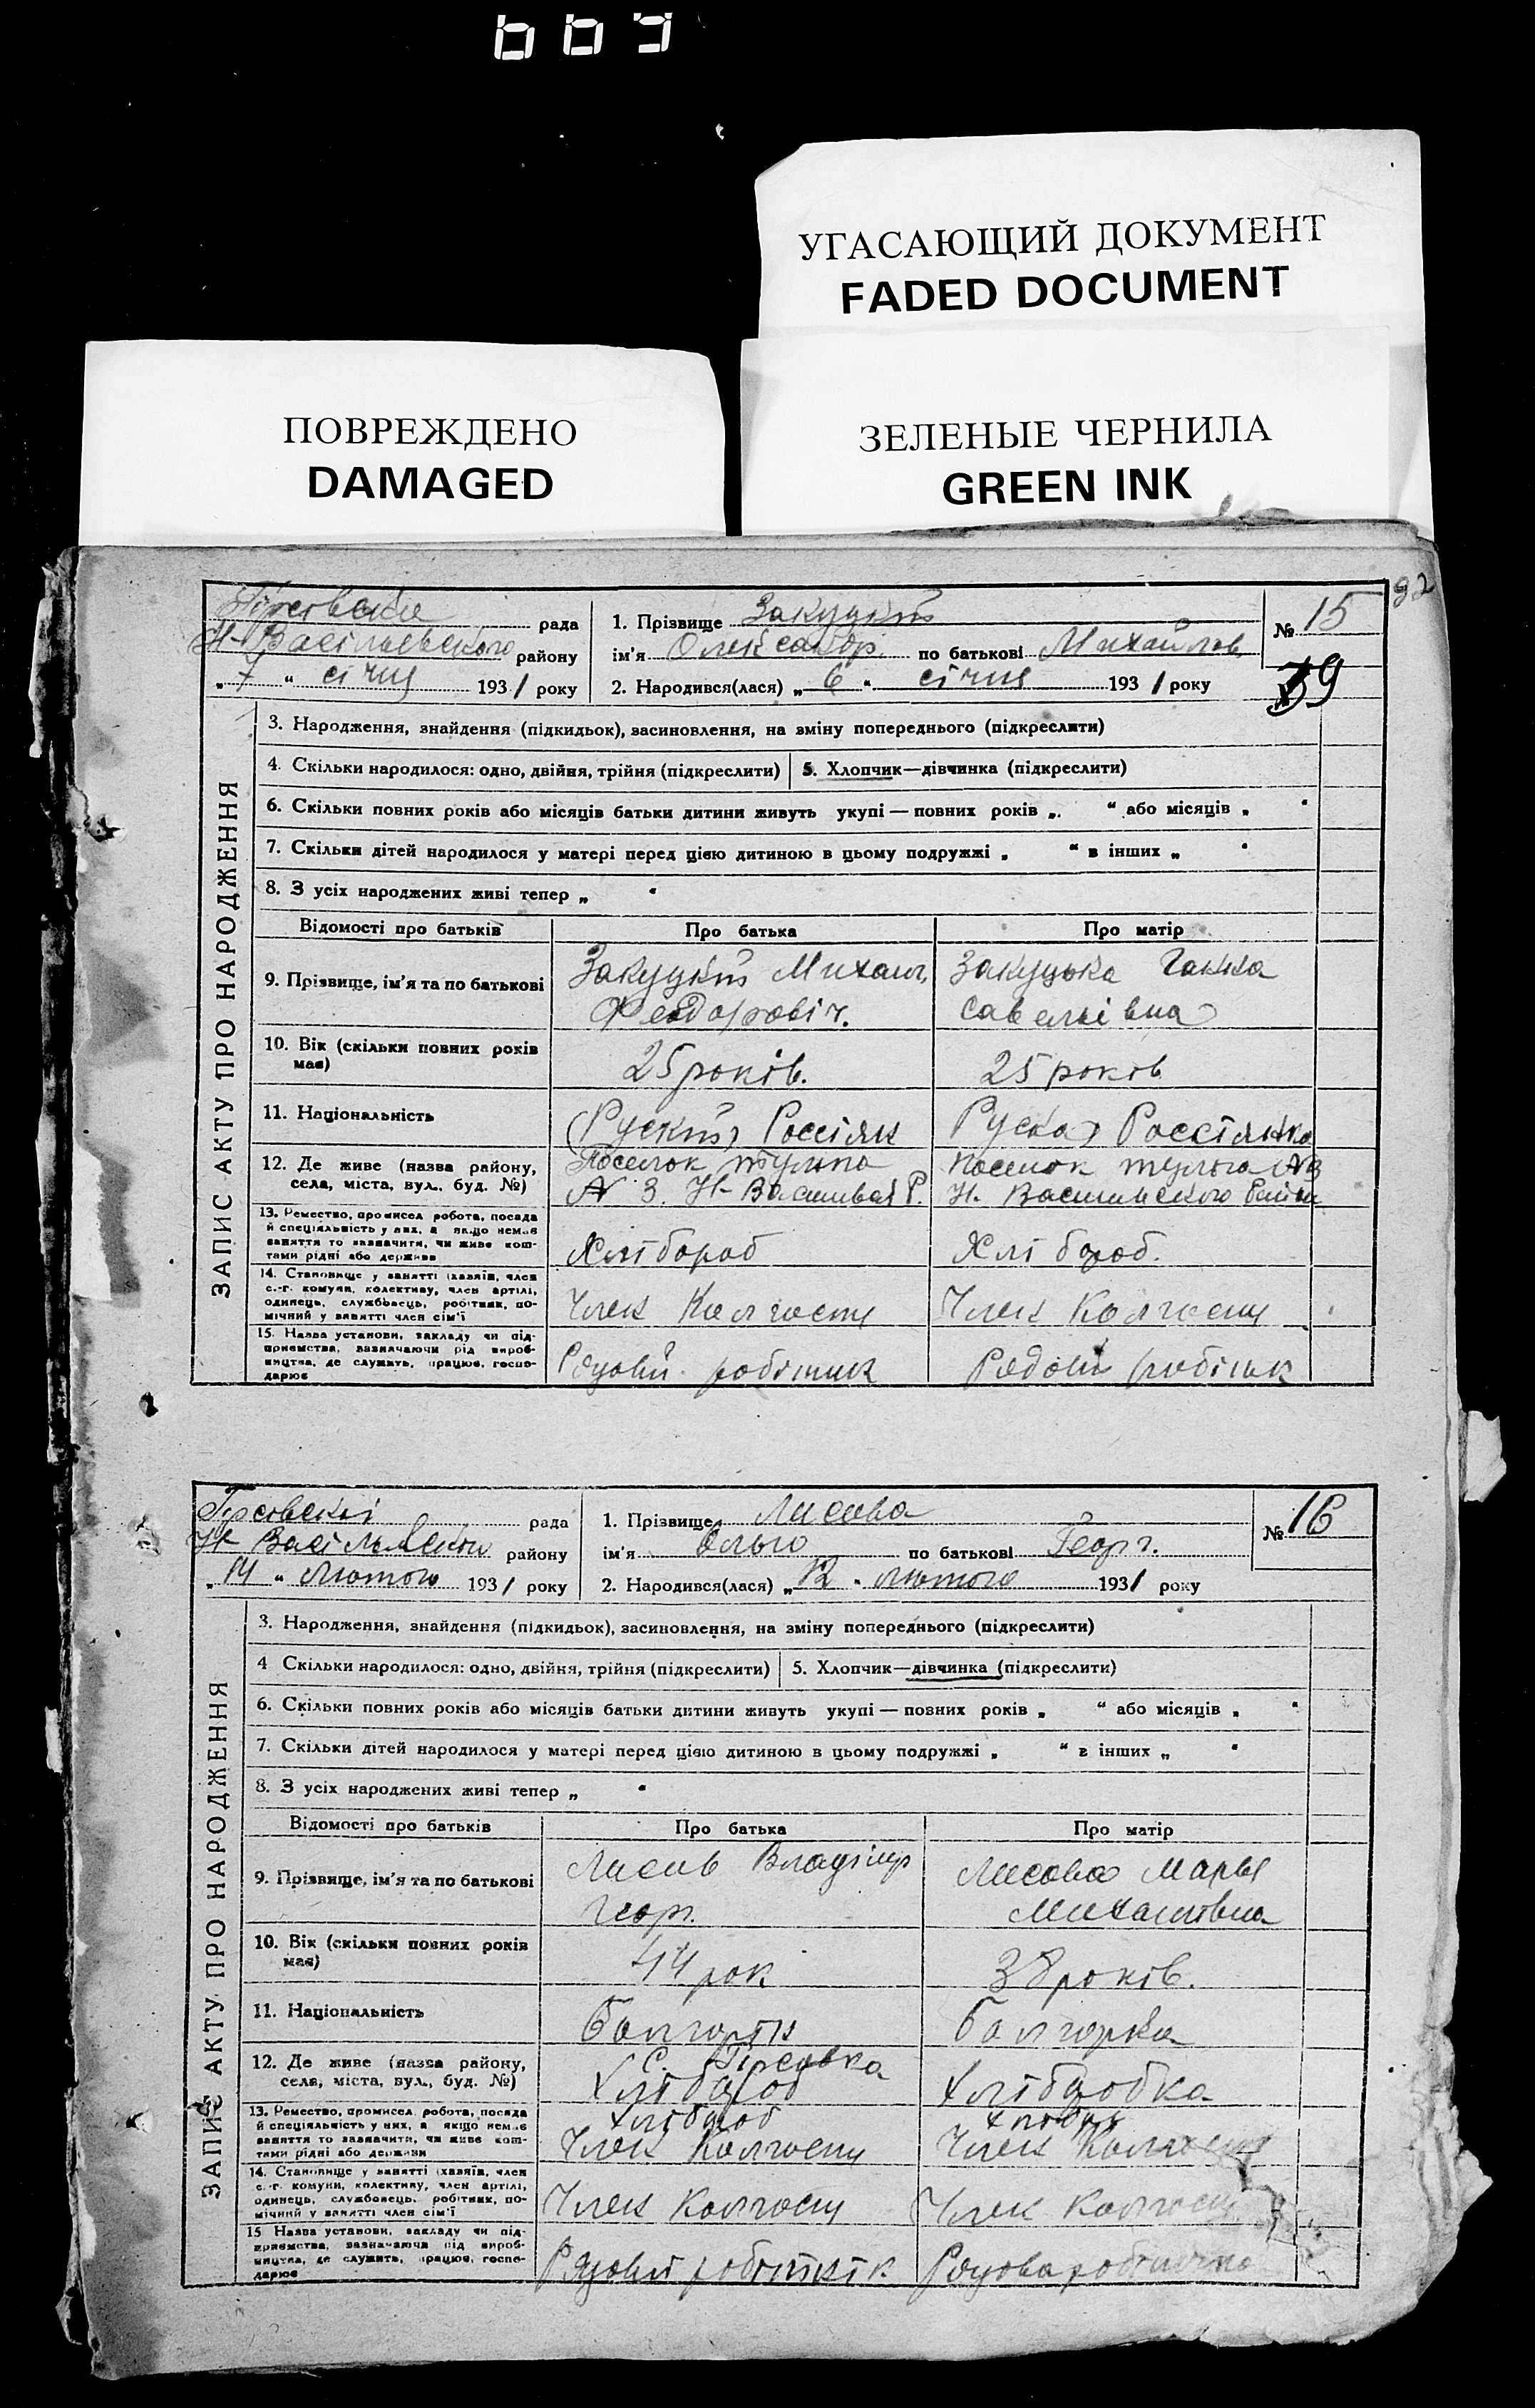 669
УГАСАЮЩИЙ ДОКУМЕНТ
FADED DOCUMENT
ПОВРЕЖДЕНО
DAMAGED
ЗЕЛЕНЫЕ ЧЕРНИЛА
GREEN INK
92
рада
Н-Васільевського району
„7“ січня 1931 року
1. Прізвище Закуцкий
ім'я Олександр. по батькові Михайлов.
2. Народився(лася) „6“ січня 1931 року
№ 15
39
ЗАПИС АКТУ ПРО НАРОДЖЕННЯ
3. Народження, знайдення (підкидьок), засиновлення, на зміну попереднього (підкреслити)
4. Скільки народилося: одно, двійня, трійня (підкреслити)
5. Хлопчик—дівчинка (підкреслити)
6. Скільки повних років або місяців батьки дитини живуть укупі — повних років „ “ або місяців „ “
7. Скільки дітей народилося у матері перед цією дитиною в цьому подружжі „ “ в інших „ “
8. З усіх народжених живі тепер „ “
Відомості про батьків
Про батька
Про матір
9. Прізвище, ім'я та по батькові
Закуцкий Михаил
Феодоровіч.
Закуцька Ганна
Савелиівна
10. Вік (скільки повних років
має)
25 років.
25 років
11. Національність
(Руский) Россіян
Руска) Россіянка
12. Де живе (назва району,
села, міста, вул., буд. №)
Поселок
N 3. Н-
поселок N3
Н.
13. Ремество, промисел робота, посада
й спеціяльність у них, а якщо немає
заняття то зазначити, чи живе кош-
тами рідні або держави
Хлібороб
Хлібороб.
14. Становище у занятті (хазяїн, член
с.-г. комуни, колективу, член артілі,
одинець, службовець, робітник, по-
мічний у занятті член сім'ї
Член Колгоспу
Член Колгоспу
15. Назва установи, закладу чи під-
приємства, зазначаючи рід вироб-
ництва, де служить, працює, госпо-
дарює
Рядовий робітник
Рядовий робітник
рада
району
„14“ Лютого 1931 року
1. Прізвище Лисова
ім'я Ольга по батькові Георг.
2. Народився(лася) „12“ лютого 1931 року
№ 16
ЗАПИС АКТУ ПРО НАРОДЖЕННЯ
3. Народження, знайдення (підкидьок), засиновлення, на зміну попереднього (підкреслити)
4 Скільки народилося: одно, двійня, трійня (підкреслити)
5. Хлопчик—дівчинка (підкреслити)
6. Скільки повних років або місяців батьки дитини живуть укупі — повних років „ “ або місяців „ “
7. Скільки дітей народилося у матері перед цією дитиною в цьому подружжі „ “ в інших „ “
8. З усіх народжених живі тепер „ “
Відомості про батьків
Про батька
Про матір
9. Прізвище, ім'я та по батькові
Лисов Владімір
Георг.
Лисова Марья
Михаиловна
10. Вік (скільки повних років
має)
44 рок
38 років.
11. Національність
Болгорін
болгорка
12. Де живе (назва району,
села, міста, вул., буд. №)
С. Гірсовка
Хлібороб
Хліборобка
13. Ремество, промисел робота, посада
й спеціяльність у них, а якщо немає
заняття то зазначити, чи живе кош-
тами рідні або держави
Хлібороб
Член Колгоспу
Член Колгоспу
14. Становище у занятті (хазяїн, член
с.-г. комуни, колективу, член артілі,
одинець, службовець, робітник, по-
мічний у занятті член сім'ї
Член Колгоспу
Член Колгоспу
15 Назва установи, закладу чи під-
приємства, зазначаючи рід вироб-
ництва, де служить, працює, госпо-
дарює
Рядовий робітнік
Рядова